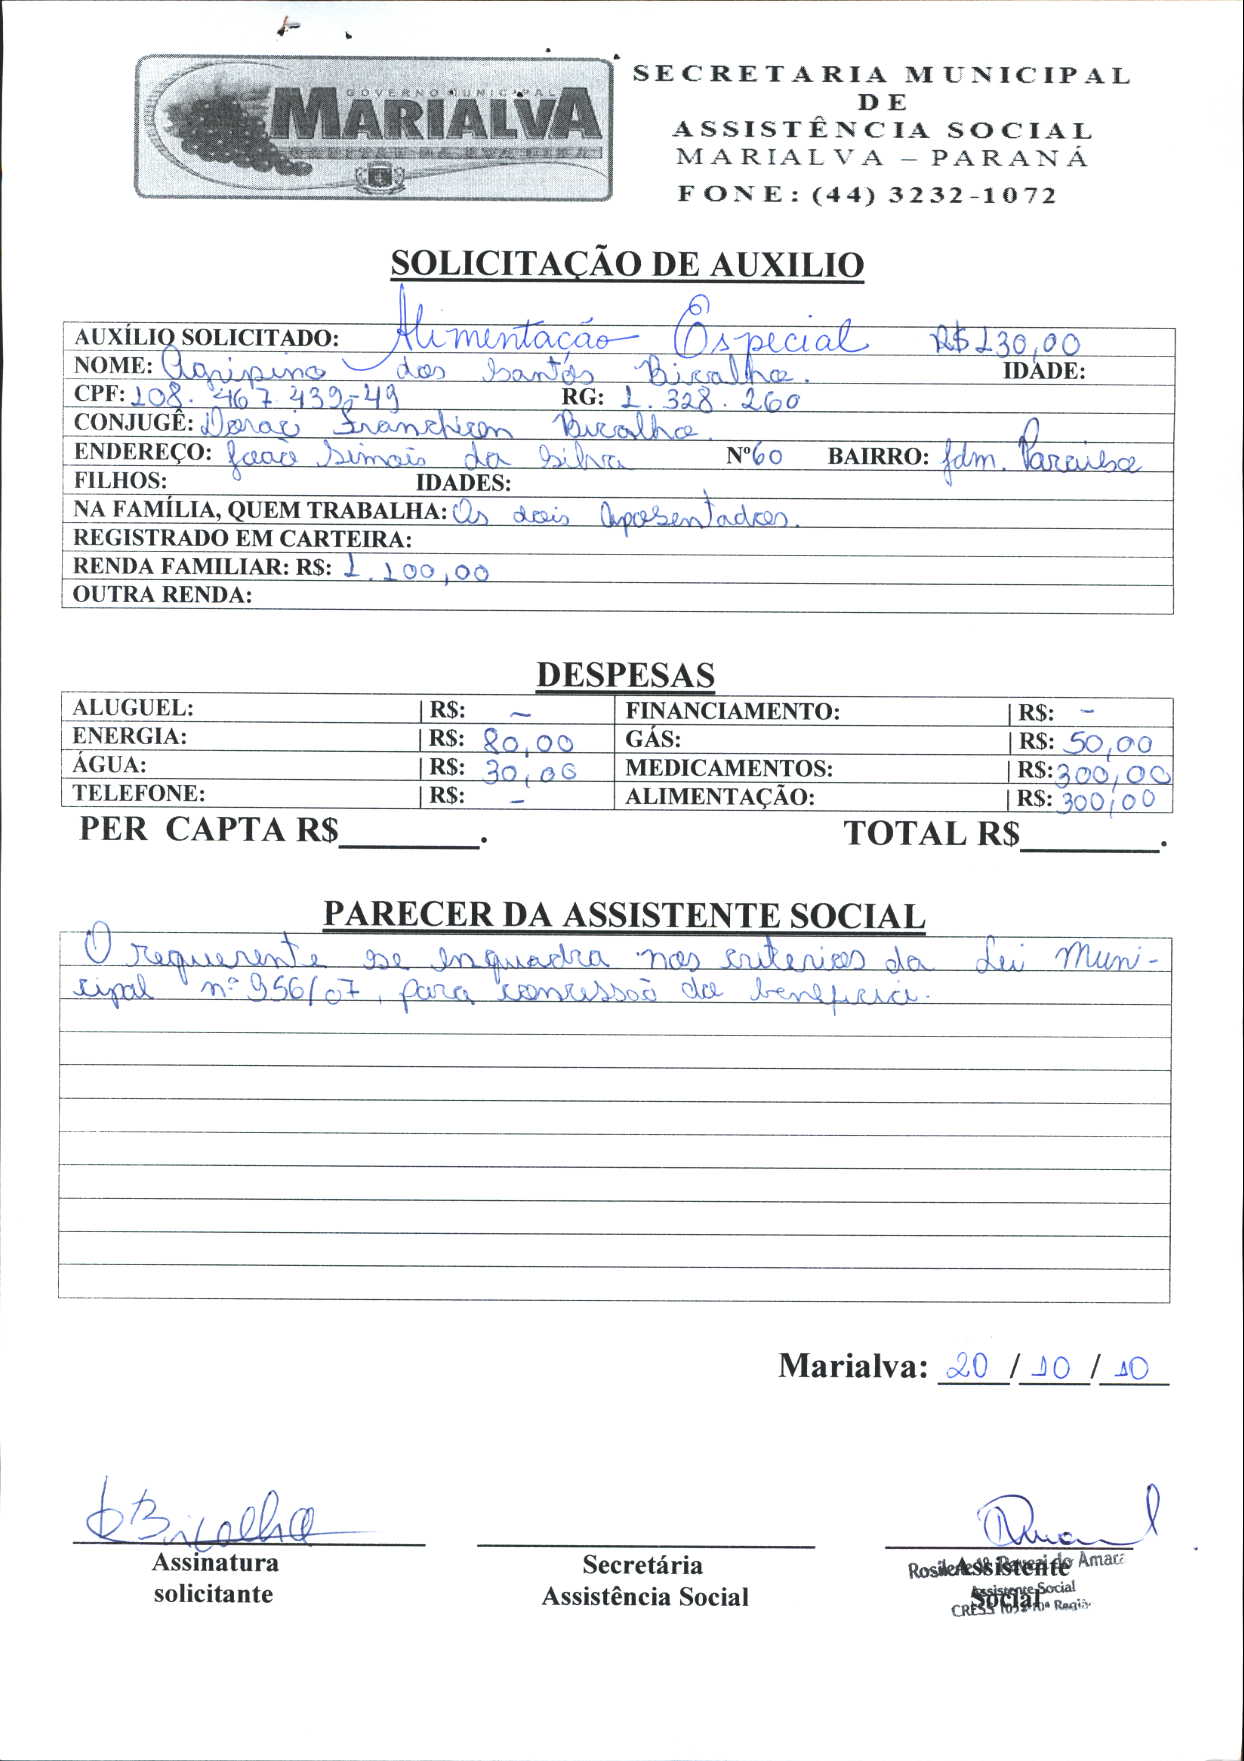 GOVERNO MUNICIPAL
MARIALVA
CAPITAL DA UVA FINA
SECRETARIA MUNICIPAL
DE
ASSISTÊNCIA SOCIAL
MARIALVA – PARANÁ
FONE: (44) 3232-1072
SOLICITAÇÃO DE AUXILIO
AUXÍLIO SOLICITADO: Alimentação Especial R$ 130,00
NOME: Agripino dos Santos Bicalho. IDADE:
CPF: 108.467.439-49 RG: 1.328.260
CONJUGÊ: Bicalho.
ENDEREÇO: João Simois da Silva Nº 60 BAIRRO: Jdm. Paraiso
FILHOS: IDADES:
NA FAMÍLIA, QUEM TRABALHA: Os dois Aposentados.
REGISTRADO EM CARTEIRA:
RENDA FAMILIAR: R$: 1.100,00
OUTRA RENDA:
DESPESAS
ALUGUEL: | R$: – FINANCIAMENTO: | R$: –
ENERGIA: | R$: 80,00 GÁS: | R$: 50,00
ÁGUA: | R$: 30,00 MEDICAMENTOS: | R$: 300,00
TELEFONE: | R$: – ALIMENTAÇÃO: | R$: 300,00
PER CAPTA R$________. TOTAL R$________.
PARECER DA ASSISTENTE SOCIAL
O requerente se enquadra nos criterios da Lei Muni-
cipal nº 956/07, para concessão do beneficio.
Marialva: 20 / 10 / 10
Bicalho
Assinatura
solicitante
Secretária
Assistência Social
Assistente
Social
Assistente Social
CRESS